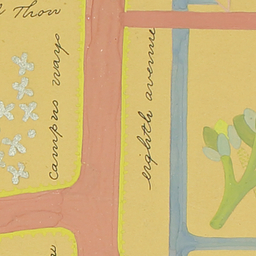 Thou
campus ways
eighth avenue